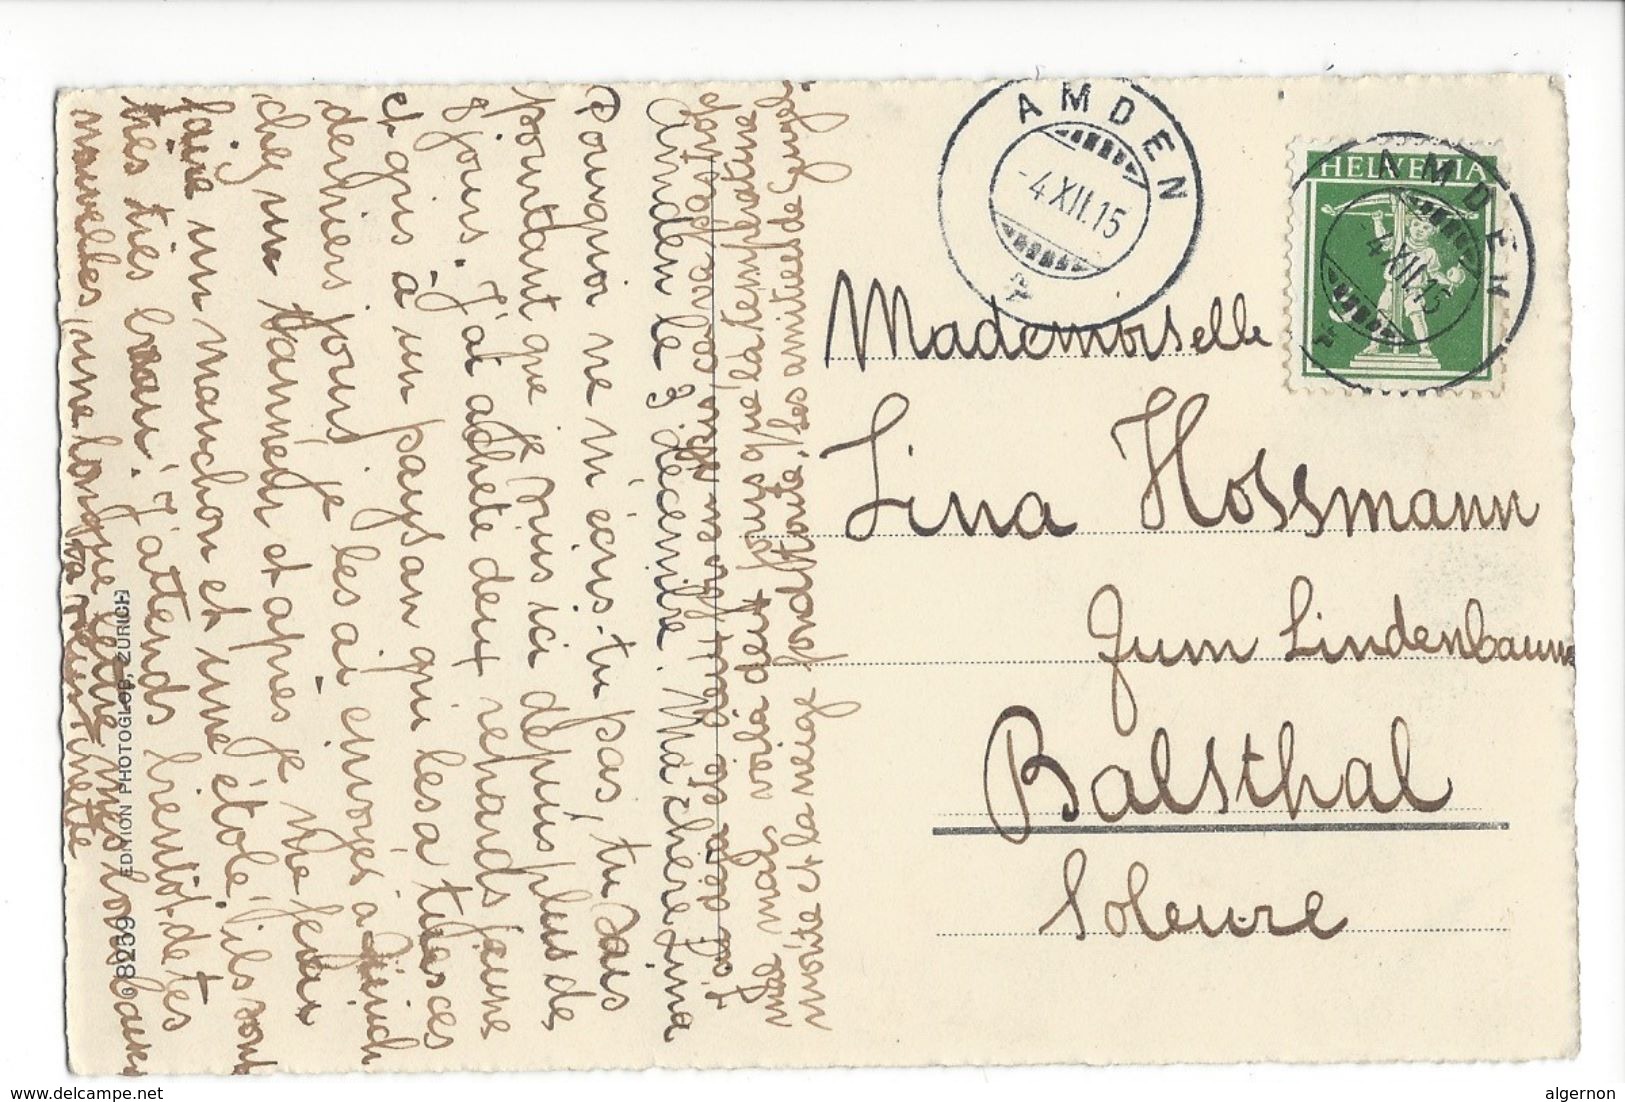 AMDEN
-4.XII.15
HELVETIA
AMDEN
-4.XII.15
Mademoiselle
Lina Hossmann
Zum Lindenbaum
Balsthal
Soleure
Amden le 3. décembre. Ma chère Lina
Pourquoi ne m'écris-tu pas, tu sais
pourtant que je suis ici depuis plus de
8 jours. J'ai acheté deux renards jaune
et gris à un paysan qui les a tués ces
derniers jours je les ai envoyés à Zürich
chez un tanneur et après je me ferai
faire un manchon et une étole, ils sont
très très beau. J'attends bientôt de tes
nouvelles, une longue lettre mes
déjà de
mal, voilà deux jours que la température
et la neige fond toute, les amitiés de
EDITION PHOTOGLOB, ZÜRICH
8239
www.delcampe.net
algernon